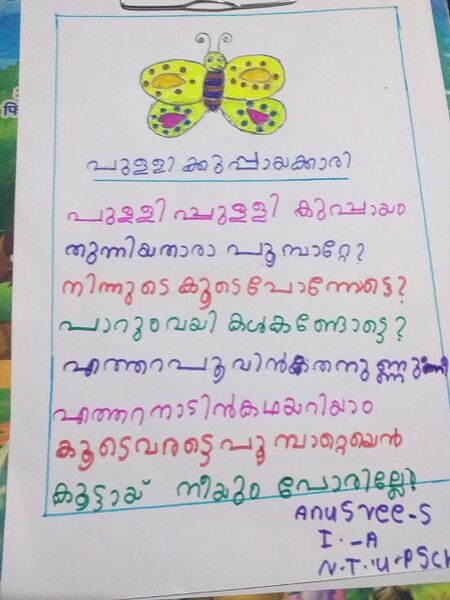 പുള്ളിക്കുപ്പായക്കാരി
പുള്ളി പുള്ളി കുപ്പായം
തുന്നിയതാരാ പൂമ്പാറ്റേ?
നിന്നുടെ കൂടെപോന്നോട്ടെ?
പാറും വയികൾകണ്ടോട്ടെ?
എത്തറപൂവിൻ തേനുണ്ണും
എത്തറനാടിൻകഥയറിയാം
കൂടെവരട്ടെ പൂമ്പാറ്റെയെൻ
കൂട്ടായ് നീയും പോരില്ലേ?
Anusree-S
I.-A
N.T.U.PSch